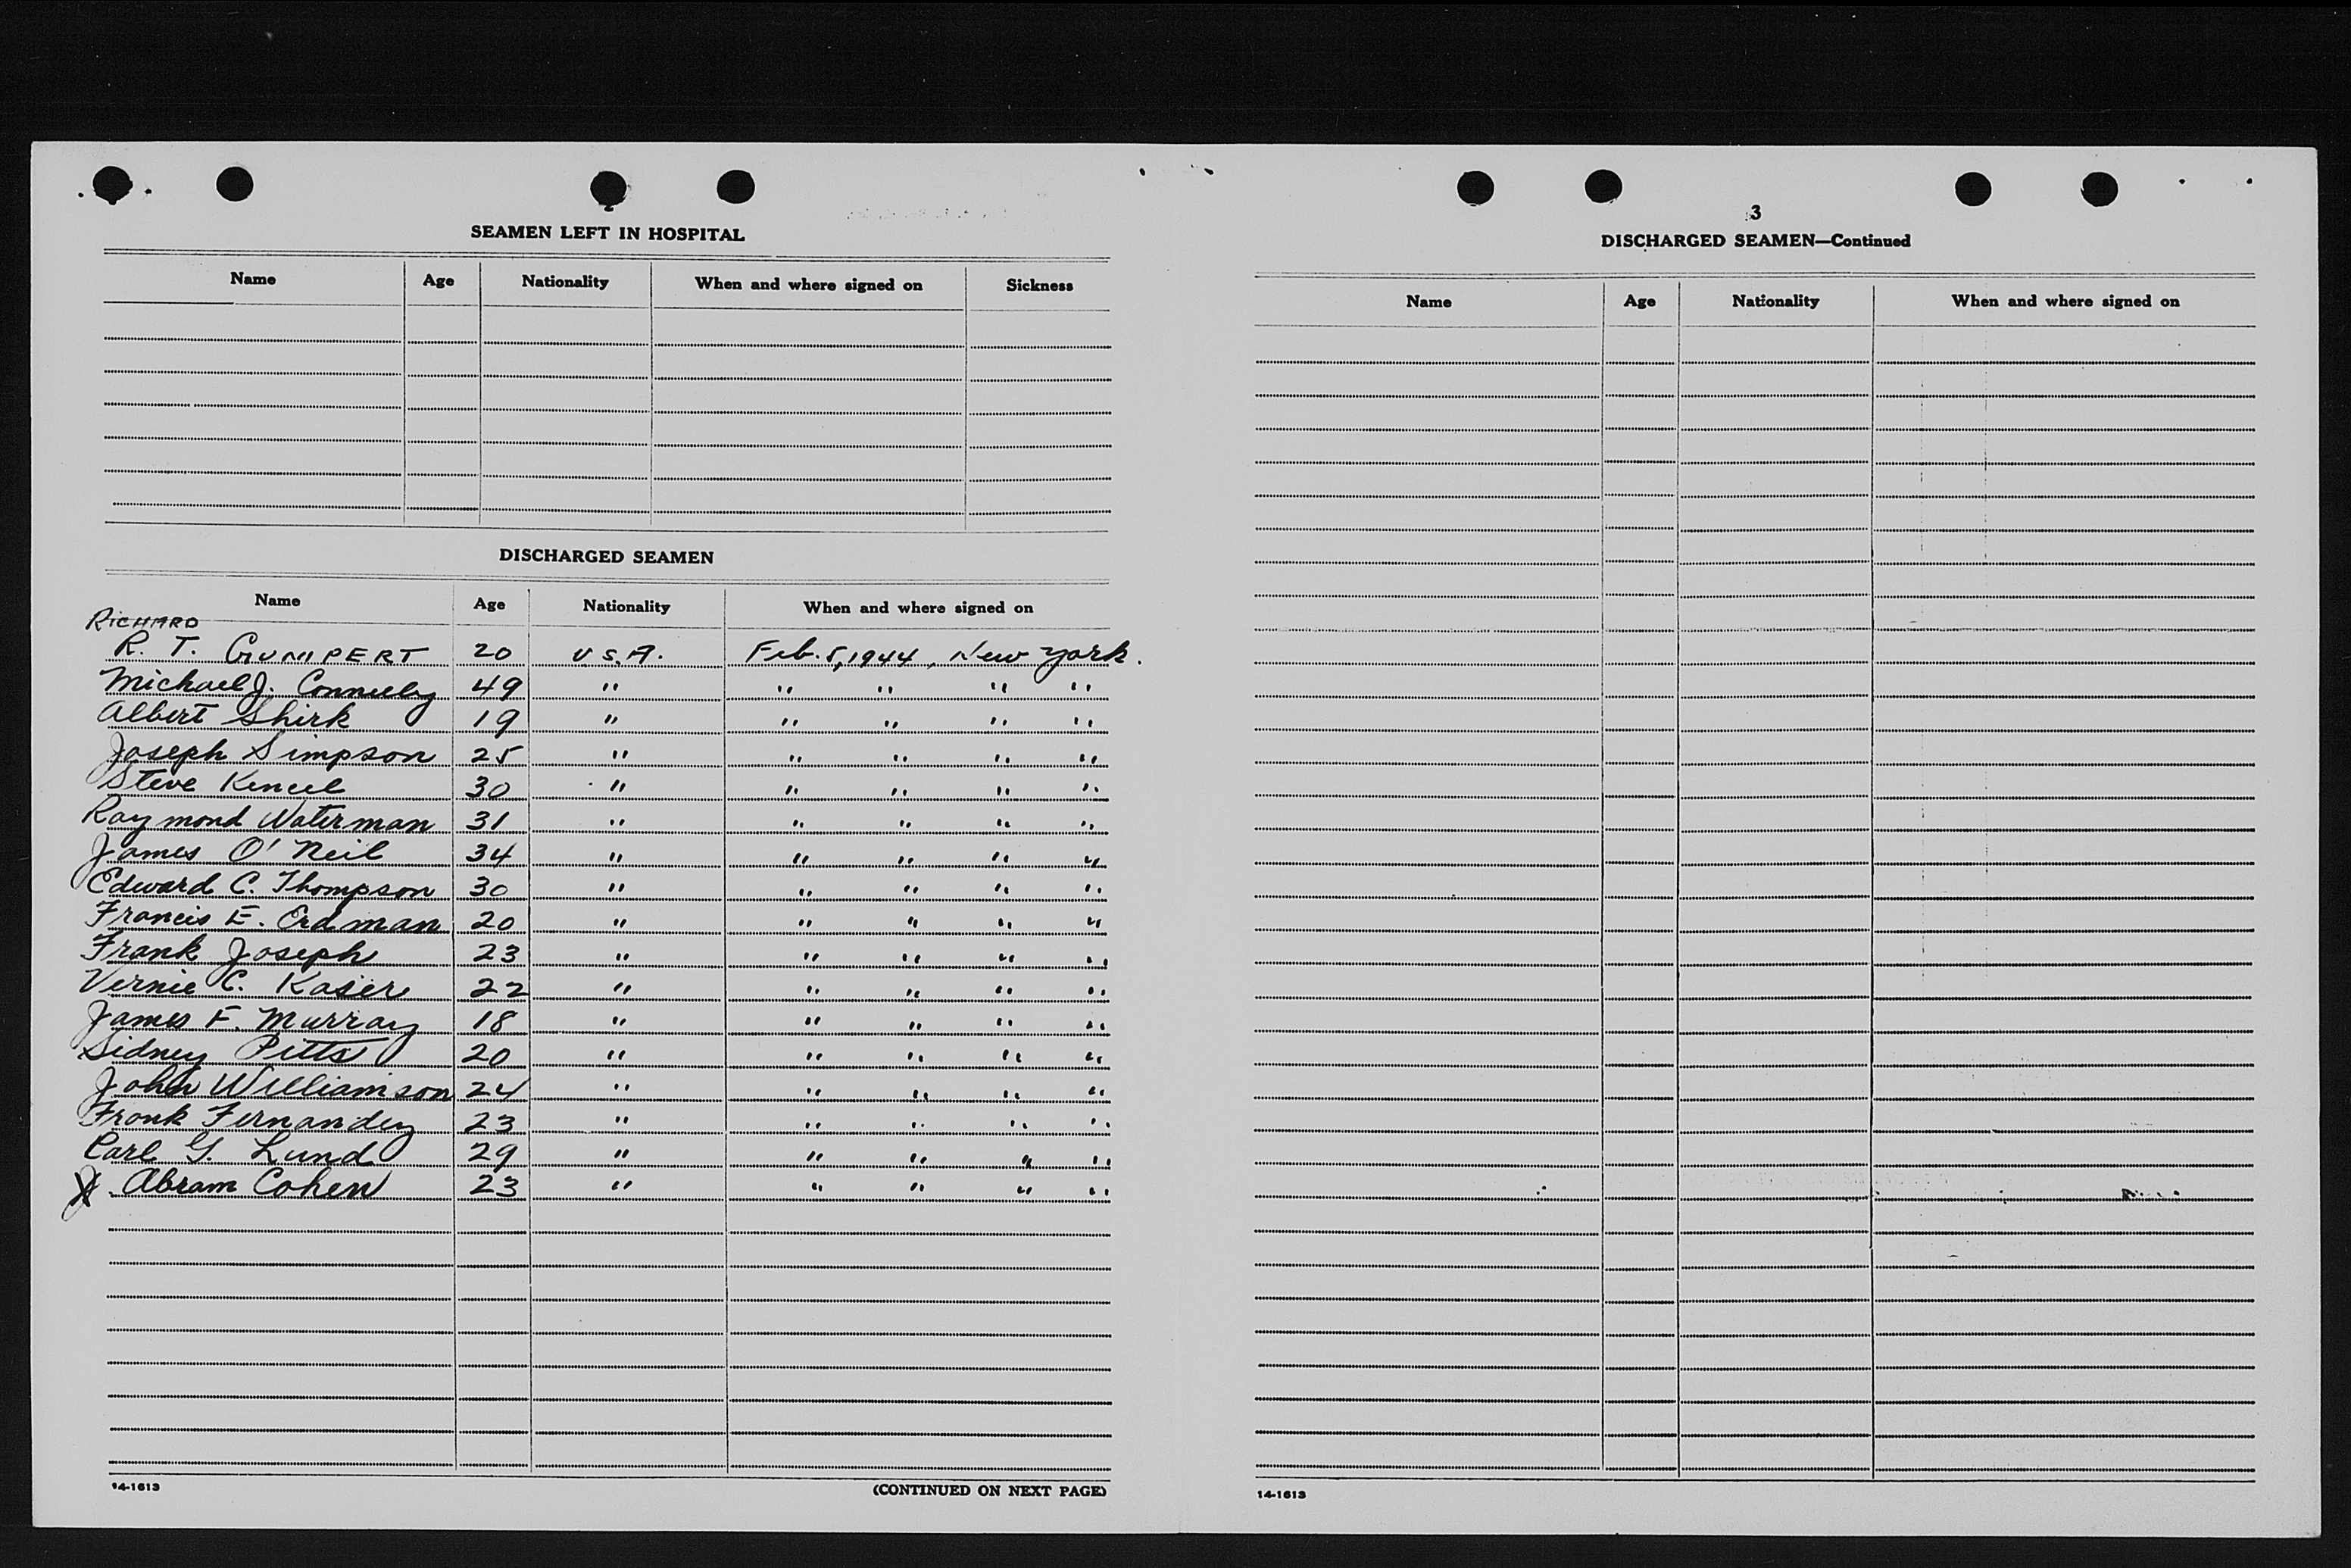 2
SEAMEN LEFT IN HOSPITAL
Name Age Nationality When and where signed on Sickness
DISCHARGED SEAMEN
Name Age Nationality When and where signed on
RICHARD
R. T. GUMPERT 20 U S.A. Feb. 5, 1944, New York.
Michael J. 49 " " " " "
Albert Shirk 19 " " " " "
Joseph Simpson 25 " " " " "
Steve 30 " " " " "
Raymond Waterman 31 " " " " "
James O'Neil 34 " " " " "
Edward C. Thompson 30 " " " " "
Francis E. Erdman 20 " " " " "
Frank Joseph 23 " " " " "
Vernie C. Kaser 22 " " " " "
James F. Murray 18 " " " " "
Sidney Pitts 20 " " " " "
John Williamson 24 " " " " "
Frank Fernandez 23 " " " " "
Carl G. Lund 29 " " " " "
Abram Cohen 23 " " " " "
14-1613 (CONTINUED ON NEXT PAGE)
3
DISCHARGED SEAMEN—Continued
Name Age Nationality When and where signed on
14-1613